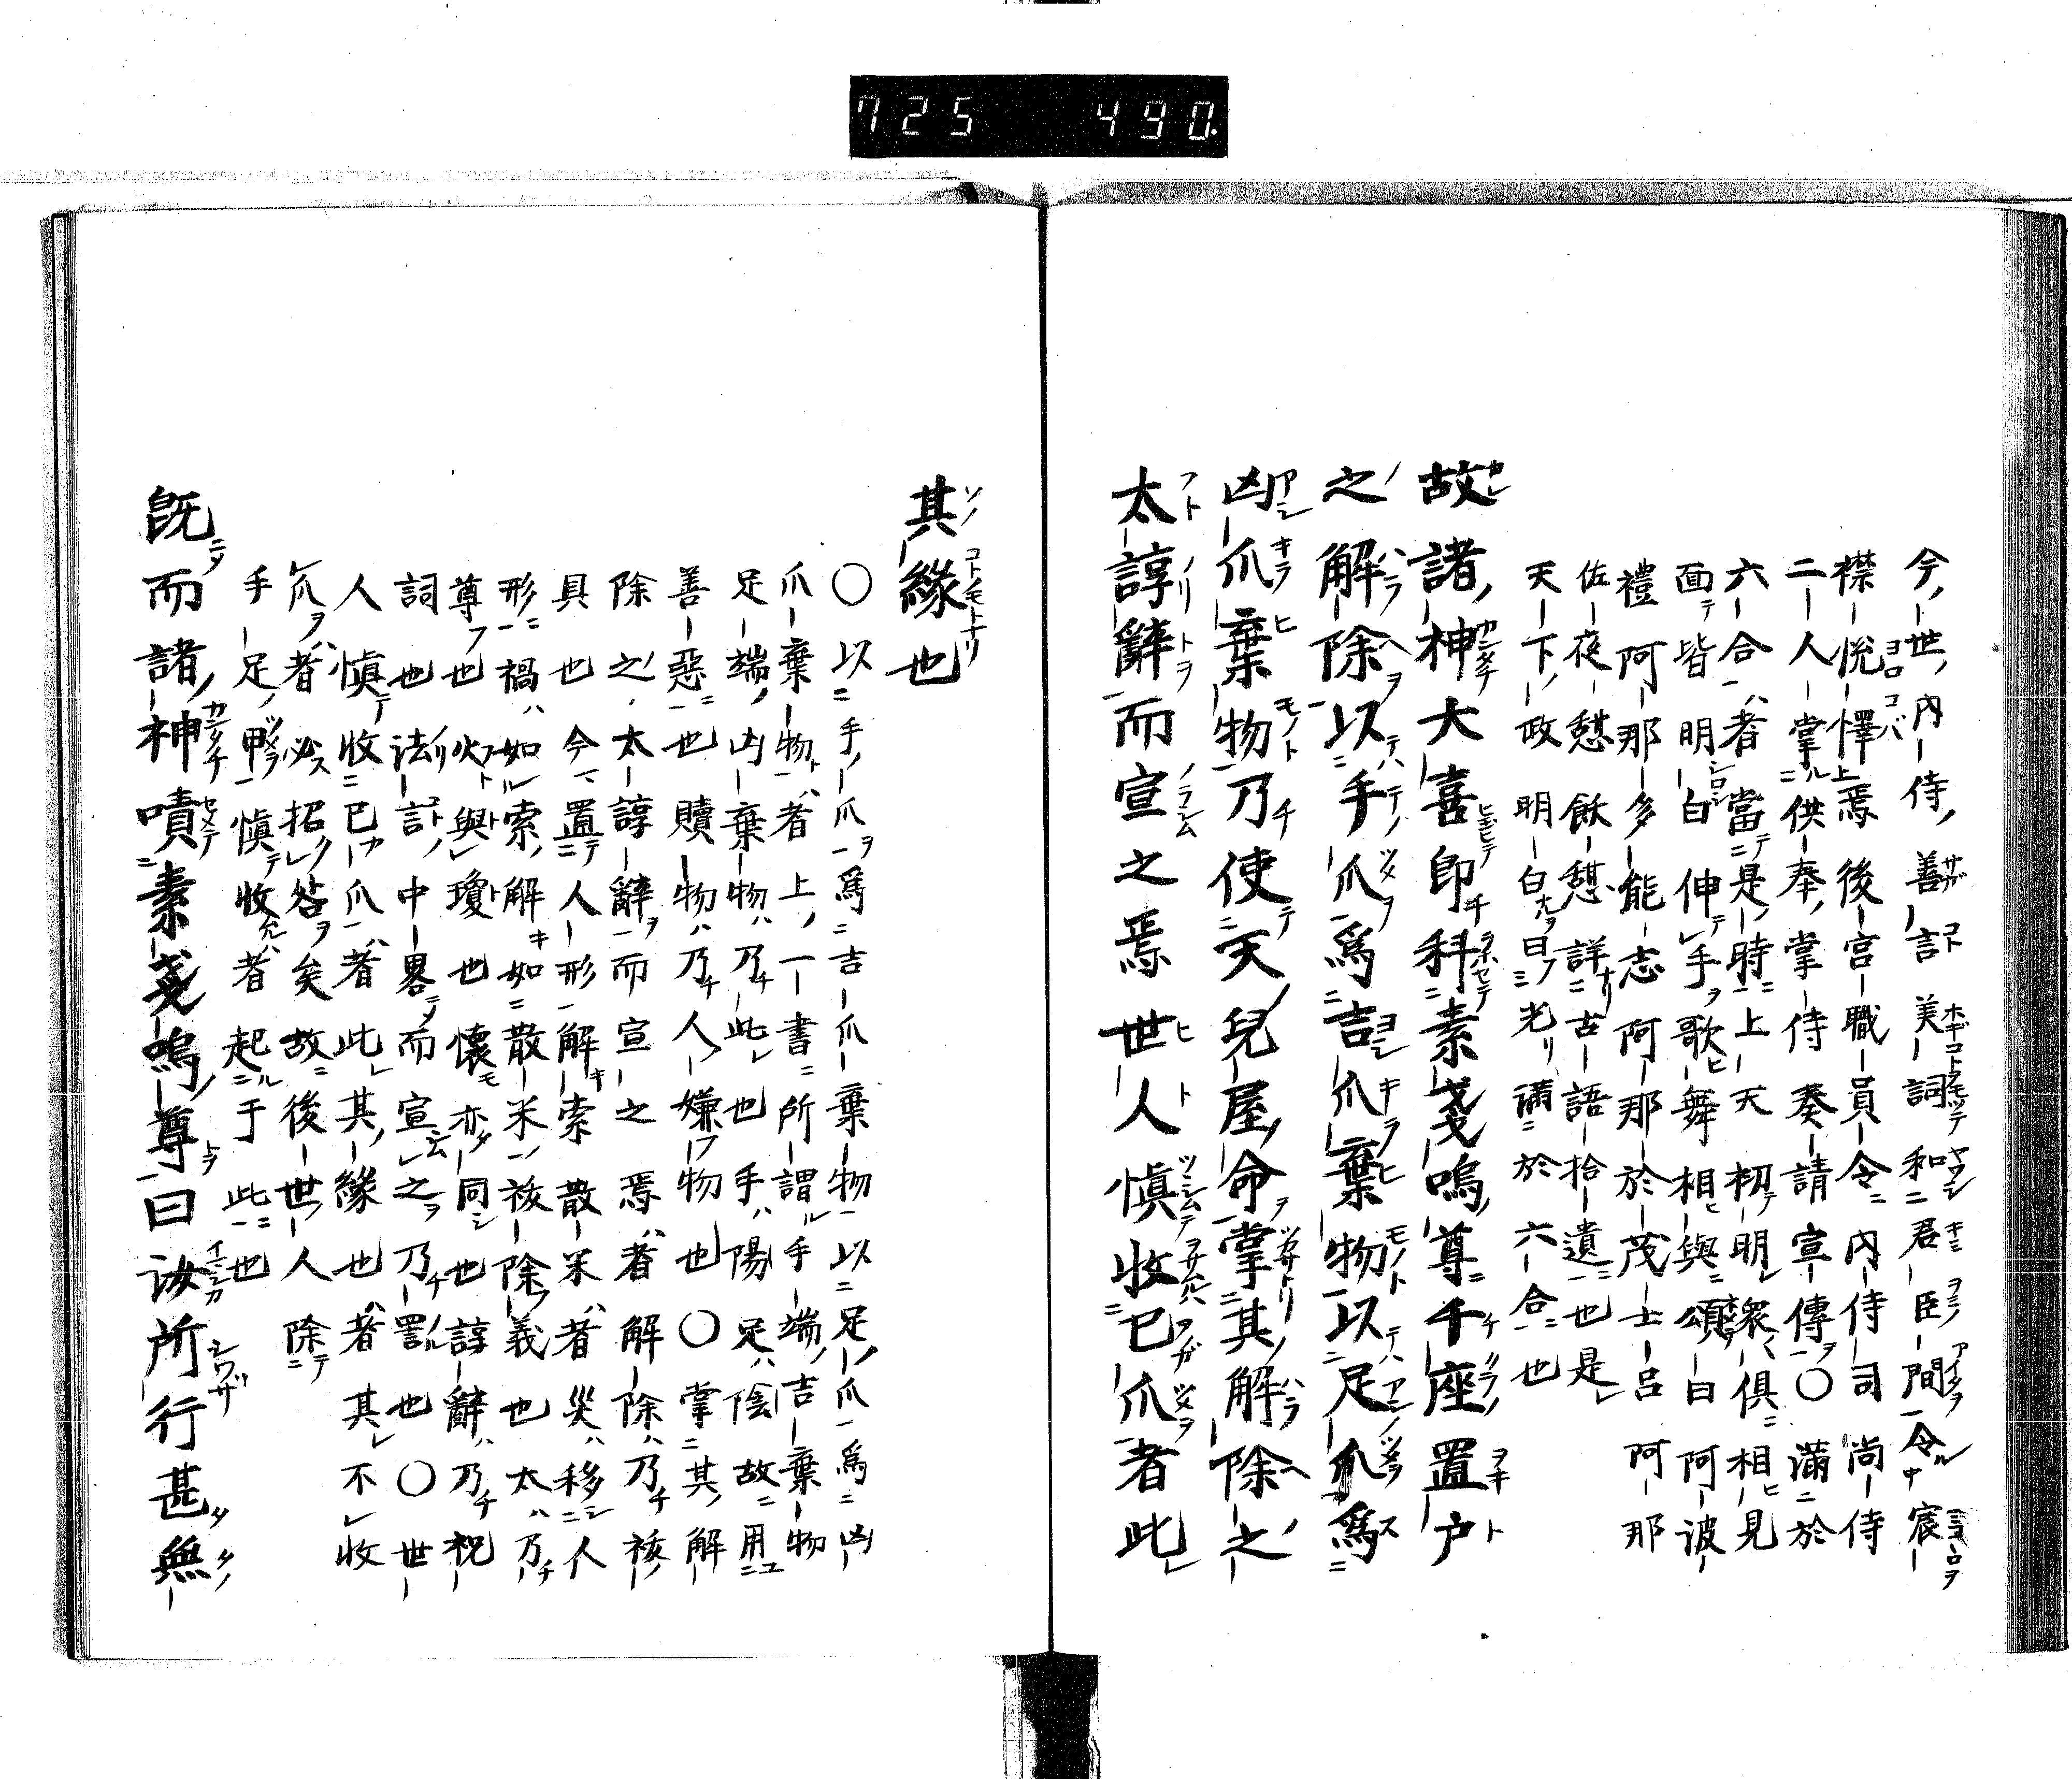 725 490.
今世内侍善言美詞和二君臣間一令中宸
襟悦懌上焉後宮職員令二内侍司尚侍
二人掌供奉掌侍奏請宣傳〇滿二於
六合一者當二是時一上天初明衆俱相見
面皆明白伸手歌舞相與頌曰阿波
禮阿那多能志阿那於茂士呂阿那
佐夜憩飫憩詳二古語拾遺一也是
天下政明白曰光滿二於六合一也
故諸神大喜即科素戔嗚尊千座置户
之解除以手爪爲吉爪棄物以足爪爲
凶爪棄物乃使天兒屋命掌其解除之
太諄辭而宣之焉世人愼收已爪者此
其縁也
〇以手爪爲吉爪棄物以足爪爲凶
爪棄物者上一書所謂手端吉棄物
足端凶棄物乃此也手陽足陰故用
善惡也贖物乃人嫌物也〇掌其解
除之太諄辭而宣之焉者解除乃祓
具也今置人形解索散米者災移人
形禍如索解如散米祓除義也太乃
尊也火與瓊也懷亦同也諄辭乃祝
詞也法言中畧而宣之乃罰也〇世
人愼收已爪者此其縁也者其不收
爪者必招咎矣故後世人除
手足甲愼收者起于此也
既而諸神嘖素戔嗚尊曰汝所行甚無